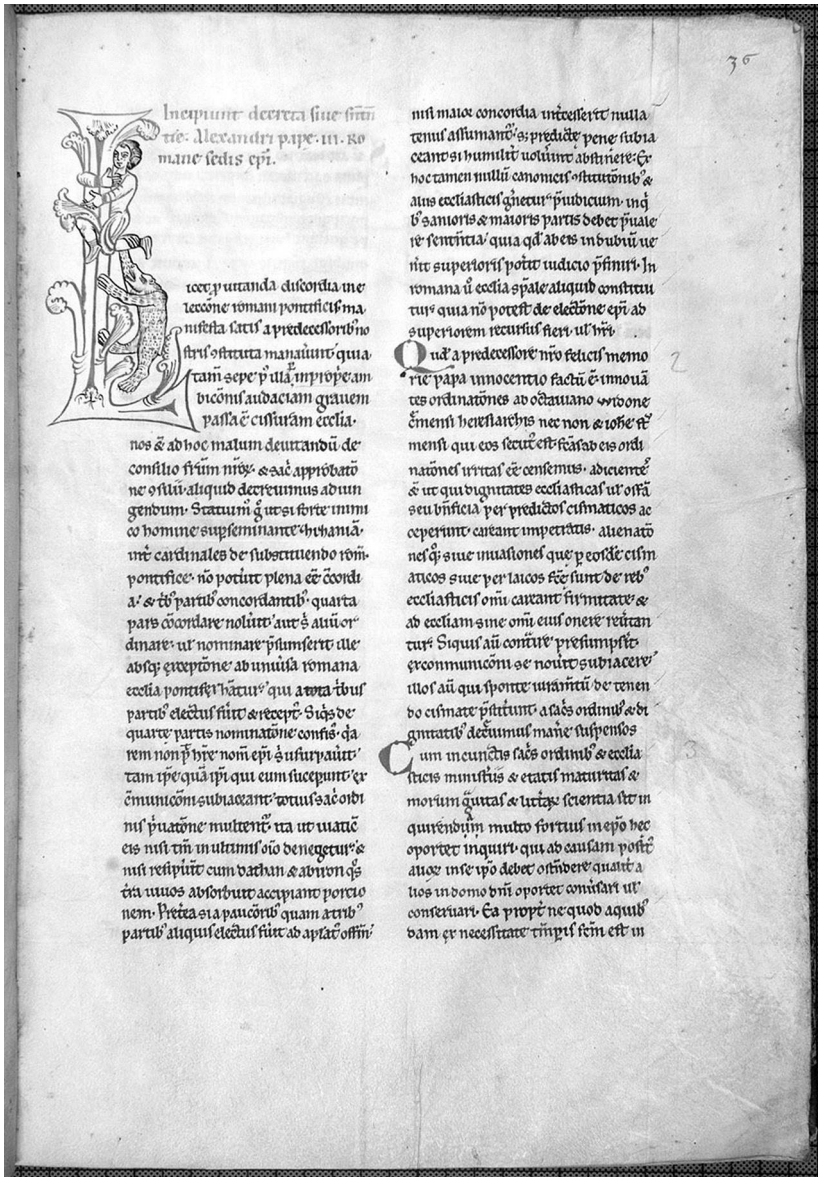 36
Incipiunt decreta siue sñtñ
tie. Alexandri pape .iii. Ro
mane sedis ep̄i.
Licet ꝑ uitanda discordia in e
lectōne romani pontificis ma
nifesta satis a predecessoribꝰ no
stris ꝯstituta manauerunt quia
tam̄ sepe
bicōnis audaciam grauem
passa ē cissuram ecclia.
nos & ad hoc malum deuitandū de
consilio fr̄um nr̄oꝝ. & sac̄ approbatō
ne ꝯsilii. aliquid decreuimus adiun
gendum. Statuimꝰ ḡ ut si forte inimi
co homine suꝑseminante zizaniā.
int̄ cardinales de substituendo rom̄.
pontifice. nō potūit plena eē cōcordi
a. & dꝰ partibꝰ concordantibꝰ. quarta
pars cōcordare noluit. aut s̄ aliū or
dinare. ul̄ nominare p̄sumserit. ille
absqꝫ exceptōne ab uniūsa romana
ecclia pontifex hatur. qui a tribus
partibꝰ electus fūit & receptꝰ. Siqꝰs de
quarte partis nominatōne confisꝰ. qa
rem non p̄ hr̄e nom̄ ep̄i s̄ usurpauit.
tam ip̄e quā ip̄i qui eum suceꝑunt. ex
c̄municōni subiaceant. totius sac̄ ordi
nis p̄uatōne multentꝰ. ita ut uiatic̄
eis nisi tm̄ in ultimis oīo denegetur. &
nisi resipūint cum dathan & abiron qꝰs
tr̄a uiuos absorbuit accipiant portio
nem. Pret̄ea si a paucōribꝰ quam a tribꝰ
partibꝰ aliquis electus fūit ad aplatꝰ offiᵐ.
nisi maior concordia int̄cesserit nulla
tenus assumantꝰ. sꝫ predicte pene subia
ceant. si humilit̄ noluerint abstinere. Ex
hoc tamen nullū canonicis ꝯstitutōnibꝰ &
aliis eccliasticis gn̄etur p̄iudicium. in qꝰ
bꝰ sanioris & maioris partis debet p̄uale
re sententia. quia qd̄ ab eis in dubiū ue
n̄it superioris pot̄it iudicio p̄finiri. In
romana ū ecclia sp̄ale aliquid constitui
tur. quia nō potest de electōne ep̄i ad
superiorem recursus fieri. ul̄ hr̄i.
Quod a predecessore nr̄o felicis memo
rie papa innocentio factū ē. innouā
tes ordinatōnes ab octauiano & widone
c̄mensi heresiarchis nec non & ioh̄e st̄
mensi qui eos secutꝰ est. fc̄as ab eis ordi
natōnes irritas eē censemus. adicientes
& ut qui dignitates eccliasticas ul̄ offic̄ā
seu bn̄ficia per predictos cismaticos ac
ceperunt. careant impetratis. alienatō
nes qꝫ. siue inuasiones que ꝑ eosdē cism
aticos siue per laicos fc̄e sunt de rebꝰ
eccliasticis om̄i careant firmitate. &
ad eccliam sine om̄i eius onere reūtan
tur. Siquis aū contūre presumpserit.
excommunicōni se nouerit subiacere.
illos aū qui sponte iuram̄tū de tenen
do cismate p̄stiterunt. a sacꝰs ordinibꝰ & di
gnitatibꝰ dec̄uimus man̄e suspensos
Cum in cunctis sacꝰs ordinibꝰ & ecclia
sticis minist̄iis & etatis maturitas &
morum ḡuitas & litt̄aꝝ scientia sit in
quirendum multo fortius in ep̄o hec
oportet inquiri. qui ad causam positꝰ
alioꝝ in se ip̄o debet ostendere qualit̄ a
lios in domo dn̄i oportet conūsari ul̄
conseruari. Ea propt̄ ne quod a quibꝰ
dam ex necessitate tēporis fcm̄ est in
2
3